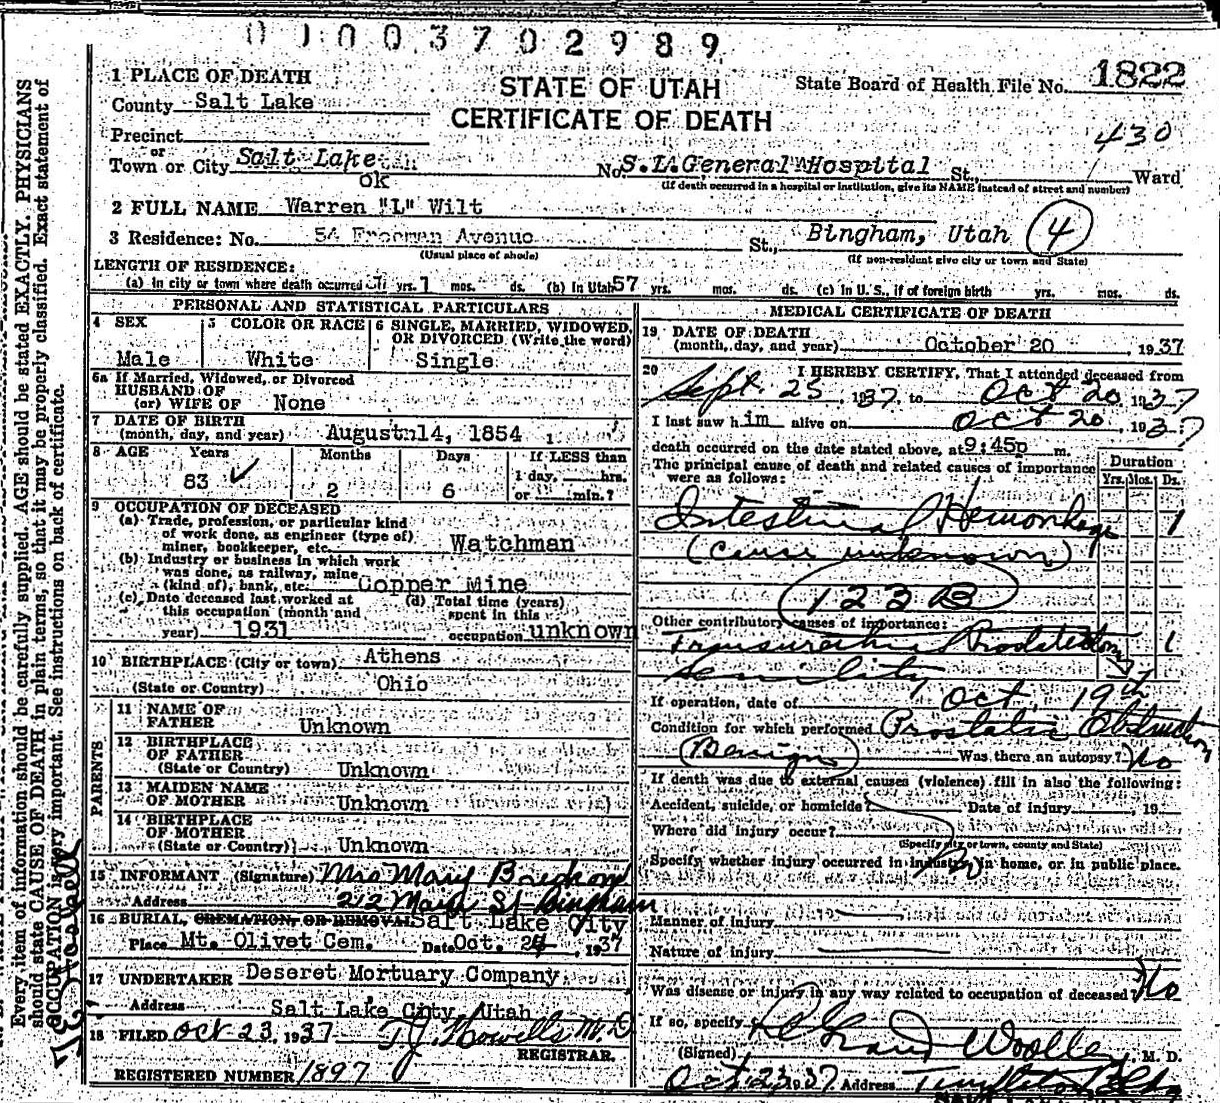 01003702989
1 PLACE OF DEATH
STATE OF UTAH
CERTIFICATE OF DEATH
State Board of Health File No. 1822
County Salt Lake
430
Precinct
or
Town or City Salt Lake
ok
No S. L. General Hospital St., Ward
(If death occurred in a hospital or institution, give its NAME instead of street and number)
2 FULL NAME Warren "L" Wilt
3 Residence: No. 54 Freeman Avenue St., Bingham, Utah 4
(Usual place of abode) (If non-resident give city or town and State)
LENGTH OF RESIDENCE:
(a) in city or town where death occurred yrs. 1 mos. ds. (b) In Utah 57 yrs. mos. ds. (c) In U. S., if of foreign birth yrs. mos. ds.
PERSONAL AND STATISTICAL PARTICULARS
4 SEX 5 COLOR OR RACE 6 SINGLE, MARRIED, WIDOWED, OR DIVORCED (Write the word)
Male White Single
6a If Married, Widowed, or Divorced
HUSBAND OF
(or) WIFE OF None
7 DATE OF BIRTH
(month, day, and year) August 14, 1854
8 AGE Years Months Days If LESS than
1 day, hrs.
83 2 6 or min.?
9 OCCUPATION OF DECEASED
(a) Trade, profession, or particular kind
of work done, as engineer (type of)
miner, bookkeeper, etc. Watchman
(b) Industry or business in which work
was done, as railway, mine
(kind of), bank, etc. Copper Mine
(c) Date deceased last worked at (d) Total time (years)
this occupation (month and spent in this
year) 1931 occupation unknown
10 BIRTHPLACE (City or town) Athens
(State or Country) Ohio
PARENTS
11 NAME OF
FATHER Unknown
12 BIRTHPLACE
OF FATHER
(State or Country) Unknown
13 MAIDEN NAME
OF MOTHER Unknown
14 BIRTHPLACE
OF MOTHER
(State or Country) Unknown
15 INFORMANT (Signature) Mrs Mary
Address 212 Main St Bingham
16 BURIAL, CREMATION, OR REMOVAL Salt Lake City
Place Mt. Olivet Cem. Date Oct. 24, 1937
17 UNDERTAKER Deseret Mortuary Company
Address Salt Lake City, Utah
18 FILED Oct 23, 1937 T J Howells M. D
REGISTRAR.
REGISTERED NUMBER 1897
MEDICAL CERTIFICATE OF DEATH
19 DATE OF DEATH
(month, day, and year) October 20, 1937
20 I HEREBY CERTIFY, That I attended deceased from
Sept. 25, 1937, to Oct 20, 1937
I last saw him alive on Oct 20, 1937
death occurred on the date stated above, at 9:45p m.
The principal cause of death and related causes of importance
were as follows:
Duration
Yrs. Mos. Ds.
Intestinal Hemorrhage 1
(cause unknown)
123 B
Other contributory causes of importance:
Transurethral Prostatectomy 1
Senility
If operation, date of Oct. 19th
Condition for which performed Prostatic Obstruction
(Benign) Was there an autopsy? No
If death was due to external causes (violence) fill in also the following:
Accident, suicide, or homicide? Date of injury, 19
Where did injury occur?
(Specify city or town, county and State)
Specify whether injury occurred in industry, in home, or in public place.
Manner of injury
Nature of injury
Was disease or injury in any way related to occupation of deceased? No
If so, specify
(Signed) Woolley, M. D.
Oct 23 1937 Address Templeton Bldg
Every item of information should be carefully supplied. AGE should be stated EXACTLY. PHYSICIANS
should state CAUSE OF DEATH in plain terms, so that it may be properly classified. Exact statement of
OCCUPATION is very important. See instructions on back of certificate.